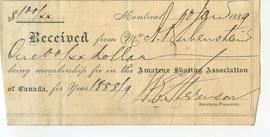 $1 00/xx Montreal, 1889
Received from Mr Rubenstein
One 00/xx dollar
being membership fee in the Amateur Skating Association
of Canada, for Year 1888/9
Secretary-Treasurer.